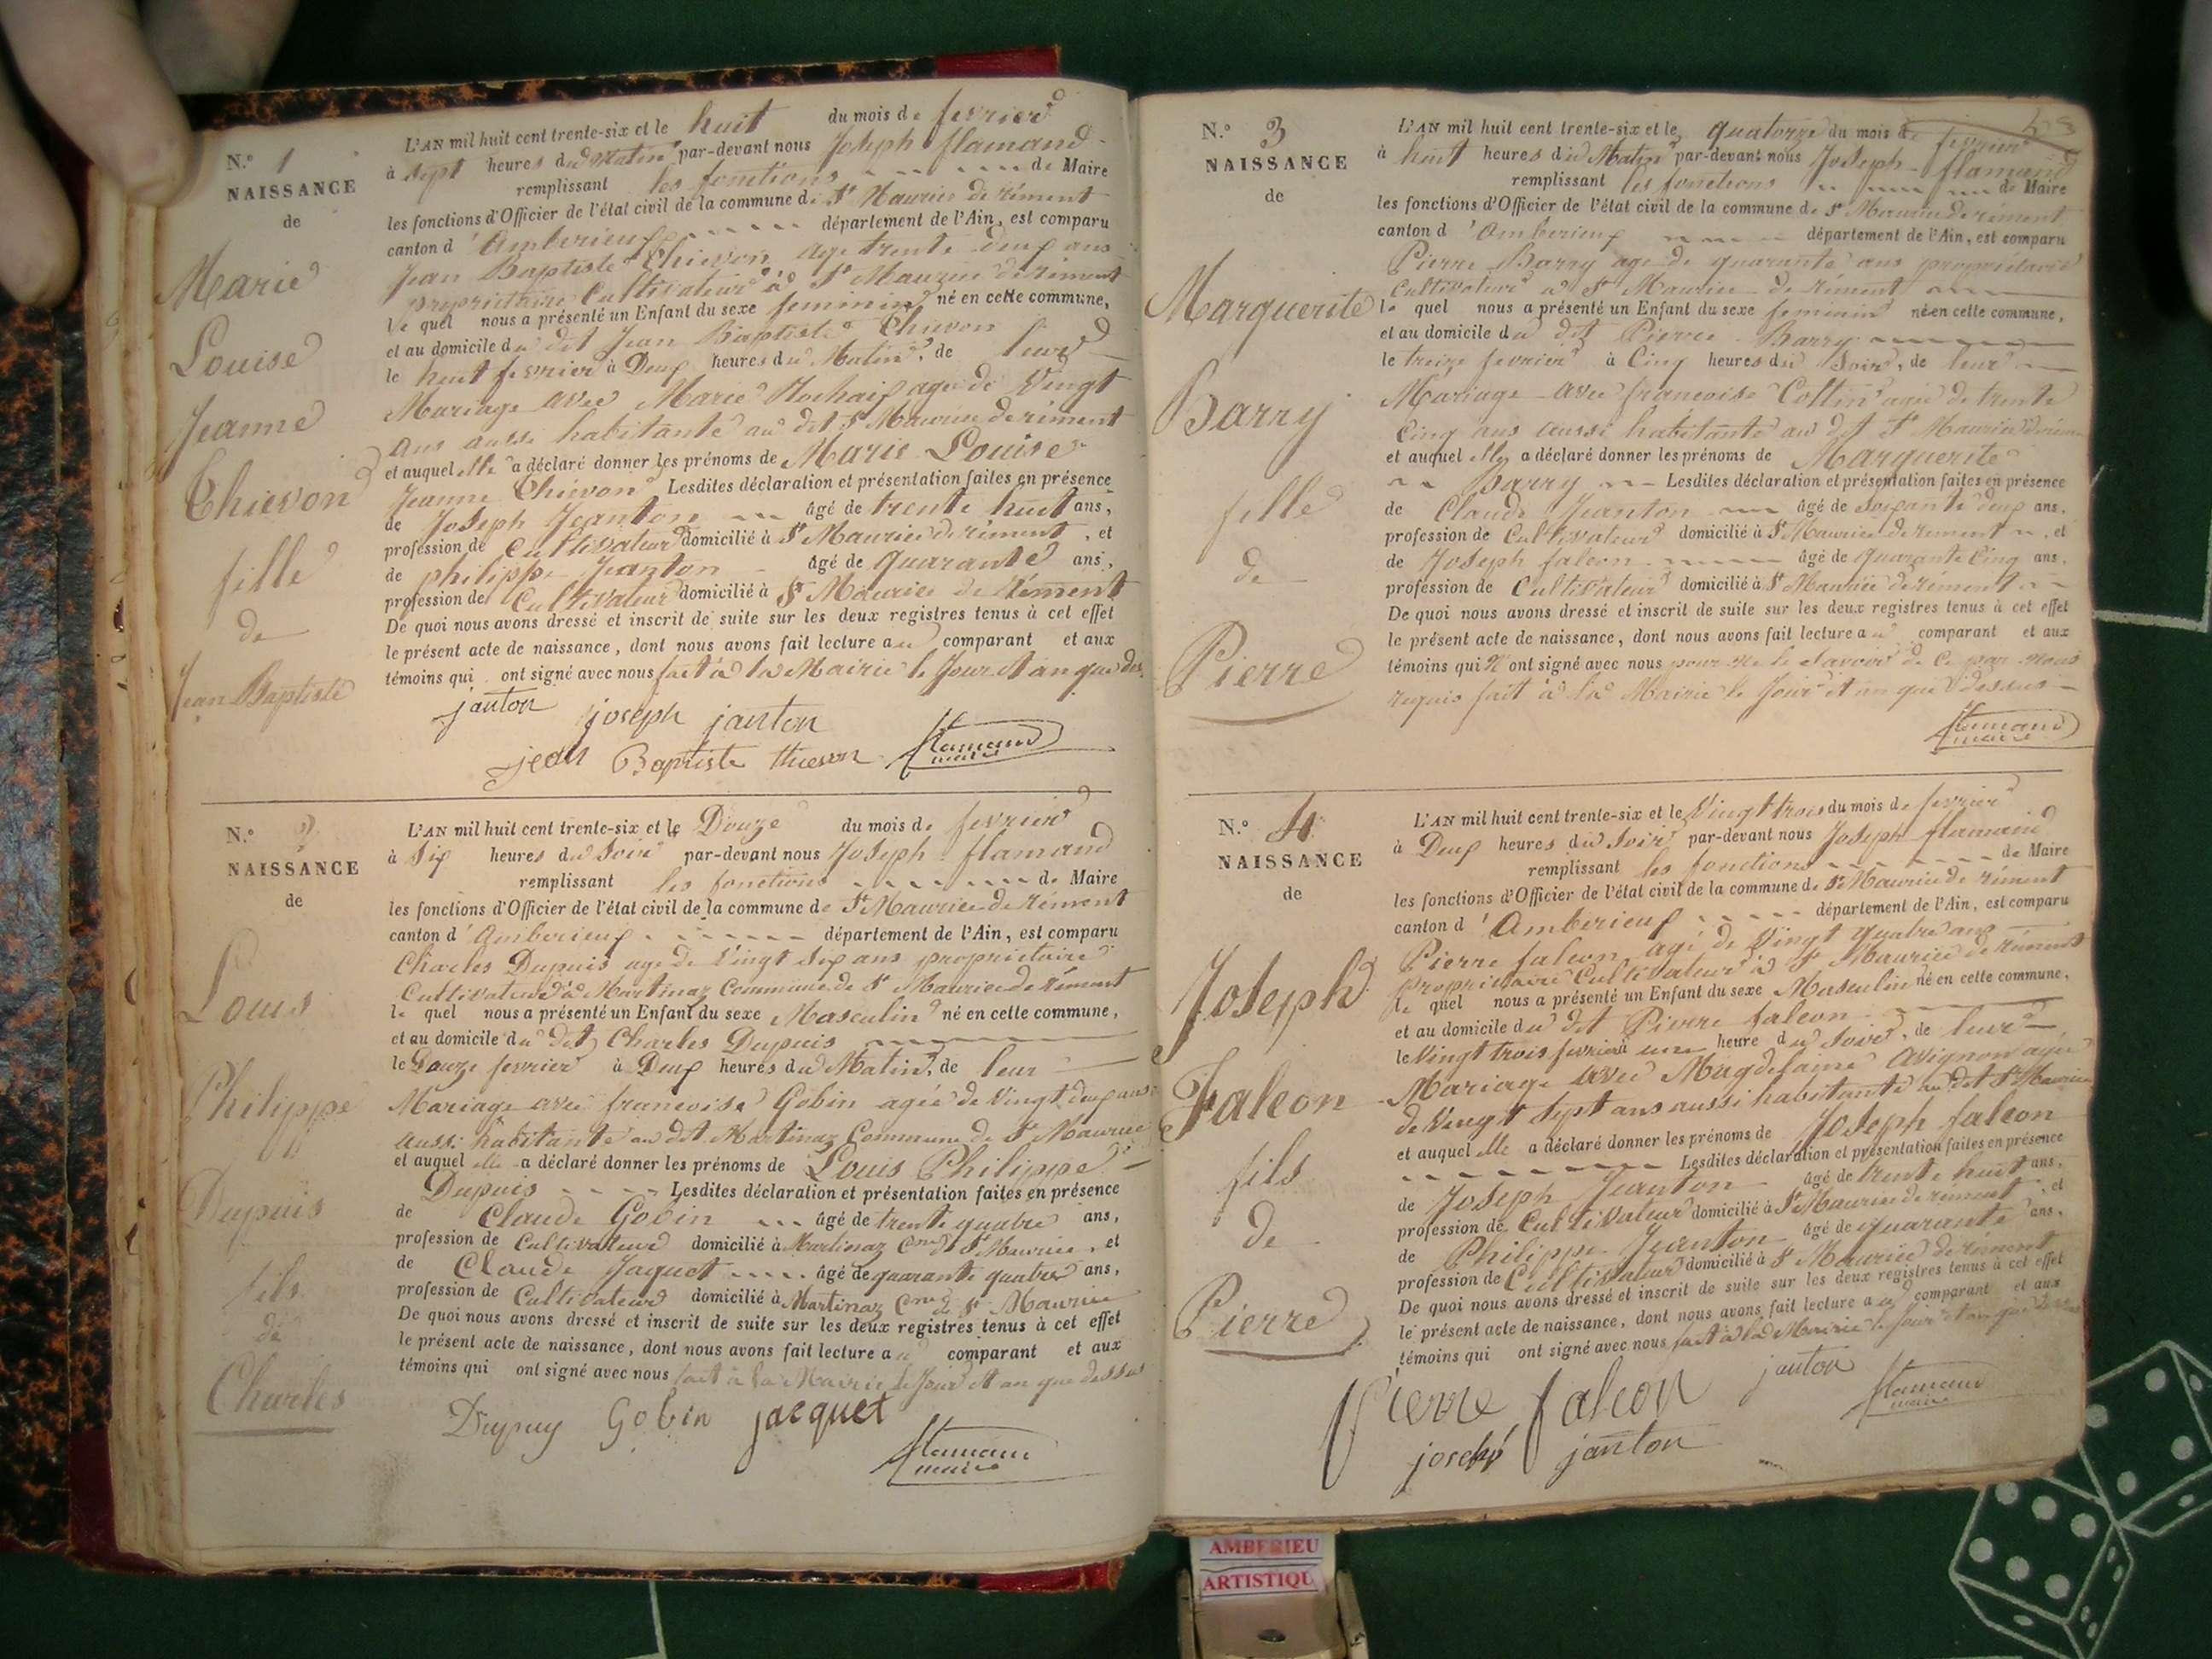 N.º 1
NAISSANCE
de
Marie
Louise
Jeanne
Thievon
fille
de
Jean Baptiste
L'AN mil huit cent trente-six et le huit du mois de fevrier
à sept heures du Matin par-devant nous Joseph flamand
remplissant les fonctions de Maire
les fonctions d'Officier de l'état civil de la commune de St Maurice de rément
canton d'Amberieux département de l'Ain, est comparu
Jean Baptiste Thievon age trente deux ans
propriétaire Cultivateur à St Maurice de rément
le quel nous a présenté un Enfant du sexe feminin né en cette commune,
et au domicile du dit Jean Baptiste Thievon
le huit fevrier à Deux heures du Matin, de leur
Mariage avec Marie Rochaix agée de Vingt
ans aussi habitante au dit St Maurice de rément
et auquel elle a déclaré donner les prénoms de Marie Louise
Jeanne Thievon Lesdites déclaration et présentation faites en présence
de Joseph Jeanton âgé de trente huit ans,
profession de Cultivateur domicilié à St Maurice de rément, et
de philippe Jeanton âgé de quarante ans,
profession de Cultivateur domicilié à St Maurice de rément
De quoi nous avons dressé et inscrit de suite sur les deux registres tenus à cet effet
le présent acte de naissance, dont nous avons fait lecture au comparant et aux
témoins qui ont signé avec nous fait à la Mairie le Jour et an que des
janton joseph janton
jean Baptiste thievon flamand maire
N.º 2
NAISSANCE
de
Louis
Philippe
Dupuis
fils
de
Charles
L'AN mil huit cent trente-six et le Douze du mois de fevrier
à Six heures du Soir par-devant nous Joseph flamand
remplissant les fonctions de Maire
les fonctions d'Officier de l'état civil de la commune de St Maurice de rément
canton d'Amberieux département de l'Ain, est comparu
Charles Dupuis age de Vingt Six ans propriétaire
Cultivateur à Martinaz Commune de St Maurice de rément
le quel nous a présenté un Enfant du sexe Masculin né en cette commune,
et au domicile du dit Charles Dupuis
le Douze fevrier à Deux heures du Matin, de leur
Mariage avec francoise Gobin agée de Vingt deux ans
aussi habitante au dit Martinaz Commune de St Maurice
et auquel elle a déclaré donner les prénoms de Louis Philippe
Dupuis Lesdites déclaration et présentation faites en présence
de Claude Gobin âgé de trente quatre ans,
profession de Cultivateur domicilié à Martinaz Cne de St Maurice, et
de Claude Jaquet âgé de quarante quatre ans,
profession de Cultivateur domicilié à Martinaz Cne de St Maurice
De quoi nous avons dressé et inscrit de suite sur les deux registres tenus à cet effet
le présent acte de naissance, dont nous avons fait lecture au comparant et aux
témoins qui ont signé avec nous fait à la Mairie le Jour et an que dessus
Dupuy Gobin jacquet
flamand maire
N.º 3
NAISSANCE
de
Marguerite
Barry
fille
de
Pierre
L'AN mil huit cent trente-six et le quatorze du mois de fevrier
à huit heures du Matin par-devant nous Joseph flamand
remplissant les fonctions de Maire
les fonctions d'Officier de l'état civil de la commune de St Maurice de rément
canton d'Amberieux département de l'Ain, est comparu
Pierre Barry age de quarante ans propriétaire
Cultivateur à St Maurice de rément
le quel nous a présenté un Enfant du sexe feminin né en cette commune,
et au domicile du dit Pierre Barry
le treize fevrier à Cinq heures du Soir, de leur
Mariage avec francoise Cottin agée de trente
Cinq ans aussi habitante au dit St Maurice de rément
et auquel elle a déclaré donner les prénoms de Marguerite
Barry Lesdites déclaration et présentation faites en présence
de Claude Jeanton âgé de soixante deux ans,
profession de Cultivateur domicilié à St Maurice de rément, et
de Joseph falcon âgé de quarante Cinq ans,
profession de Cultivateur domicilié à St Maurice de rément
De quoi nous avons dressé et inscrit de suite sur les deux registres tenus à cet effet
le présent acte de naissance, dont nous avons fait lecture au comparant et aux
témoins qui N'ont signé avec nous pour ne le Savoir de ce par nous
requis fait à la Mairie le Jour et an que dessus
flamand maire
N.º 4
NAISSANCE
de
Joseph
Falcon
fils
de
Pierre
L'AN mil huit cent trente-six et le Vingt trois du mois de fevrier
à Deux heures du Soir par-devant nous Joseph flamand
remplissant les fonctions de Maire
les fonctions d'Officier de l'état civil de la commune de St Maurice de rément
canton d'Amberieux département de l'Ain, est comparu
Pierre falcon agé de Vingt quatre ans
propriétaire Cultivateur à St Maurice de rément
le quel nous a présenté un Enfant du sexe Masculin né en cette commune,
et au domicile du dit Pierre falcon
le Vingt trois fevrier à une heure du Soir, de leur
Mariage avec Magdelaine Avignon agée
de Vingt Sept ans aussi habitante au dit St Maurice
et auquel elle a déclaré donner les prénoms de Joseph falcon
Lesdites déclaration et présentation faites en présence
de Joseph Jeanton âgé de trente huit ans,
profession de Cultivateur domicilié à St Maurice de rément, et
de Philippe Jeanton âgé de quarante ans,
profession de Cultivateur domicilié à St Maurice de rément
De quoi nous avons dressé et inscrit de suite sur les deux registres tenus à cet effet
le présent acte de naissance, dont nous avons fait lecture au comparant et aux
témoins qui ont signé avec nous fait à la Mairie le Jour et an que dessus
Pierre falcon janton flamand maire
joseph janton
AMBERIEU
ARTISTIQU